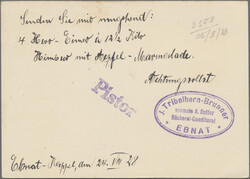 Senden Sie mir umgehend:
4 Herr-Eimer à 12½ Kilo
Himbeer mit Apfel-Marmelade.
Achtungsvollst
Pistor
J. Tribelhorn-Brunner
Bäckerei-Conditorei
EBNAT
Ebnat-Kappel, den 24. VII 28